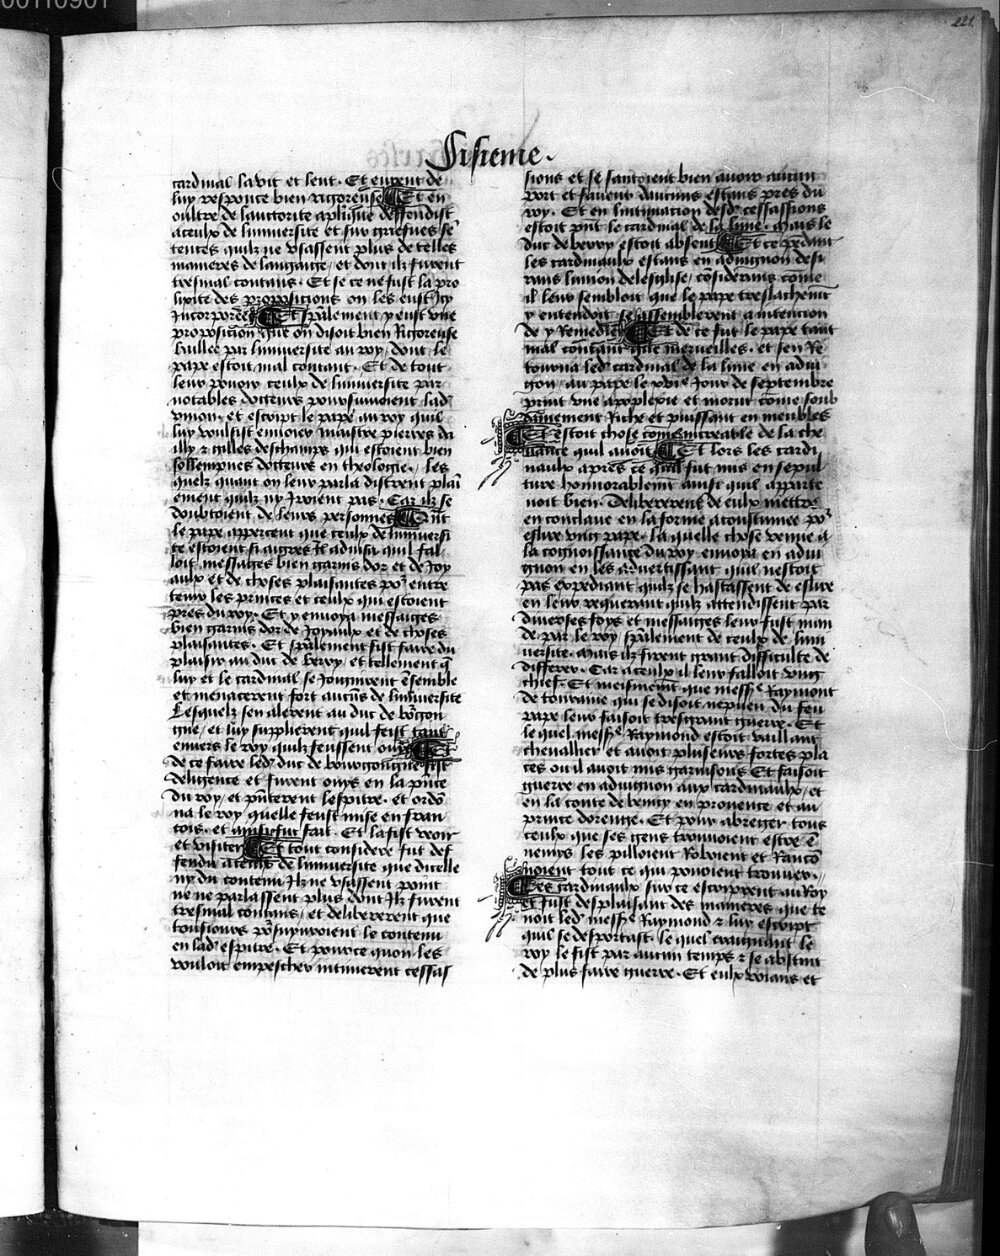 00110901
221
Sisieme.
cardinal la vit et leut. Et eurent de
luy responce bien rigoreuse Et en
oultre de lauctorite aplique deffendist
a ceulx de luniversite et sur griefues se
tences quilz ne usassent plus de telles
manieres de langaige, et dont ilz furent
tresmal contans. Et se ce ne fust la pro
lixite des proposicions on les eust icy
incorporees Et spalement y eust une
proposicion que on disoit bien rigoreuse
baillee par luniversite au roy, dont le
pape estoit mal contant. Et de tout
leur pouoir ceulx de luniversite par
notables docteurs poursuivoient lad
union. et escript le pape au roy quil
luy voulsist envoier maistre pierres da
illy z gilles deschamps qui estoient bien
sollempnes docteurs en theologie, les
quelz quant on leur parla distrent plai
nement quilz ny iroient pas. Car ilz se
doubtoient de leurs personnes Qnt
le pape apperceut que ceulx de luniversi
te estoient si aigres Il advisa quil fal
loit messages bien garnis dor et de joy
aulx et de choses plaisantes po entre
tenir les princes et ceulx qui estoient
pres du roy. Et y envoya messaiges
bien garnis dor de joyaulx et de choses
plaisantes. Et spalement fist faire du
plaisir au duc de berry et tellement q
luy et le cardinal se joingnirent esemble
et menacerent fort aucuns de luniversite
Lesquelz sen alerent au duc de borgon
gne, et luy supplierent quil feist tant
envers le roy quilz feussent ouys Et
de ce faire led duc de bourgongne fist
deligence et furent ouys en la pnce
du roy, et pnterent lespitre. et ordo
na le roy quelle feust mise en fran
cois. et ainsi fut fait. Et la fist veoir
et visiter Et tout considere fut def
fendu a ceulx de luniversite que dicelle
ny du contenu ilz ne usassent point
ne ne parlassent plus dont ilz furent
tresmal contans, et delibererent que
tousiours poursuyvroient le contenu
en lad espitre. Et pource quon les
vouloit empescher intimerent cessas
sions et se santoient bien avoir aucun
port et faveur daucuns estans pres du
roy. Et en lintimation desd cessassions
estoit pnt le cardinal de la lune. Mais le
duc de berry estoit absent Et ce pedant
les cardinaulx estans en advignon desi
rans lunion de leglise, considerans come
il leur sembloit que le pape treslachemt
y entendoit se assemblerent a intencion
de y remedier Et de ce fut le pape tant
mal contant que merveilles. et sen re
tourna led cardinal de la lune en advi
gon, au pape le xvie jour de septembre
print une apoplexie et morut come soub
dainement riche et puissant en meubles
Et estoit chose comincreable de la che
vance quil avoit Et lors les cardi
naulx apres ce quil fut mis en sepul
ture honnorablemt ainsi quil apparte
noit bien. Delibererent de eulx mettre
en conclave en la forme acoustumee po
eslire ung pape. la quelle chose venue a
la cognoissance du roy envoya en advi
gnon en les advertissant quil nestoit
pas expediant quilz se hastassent de eslire
en leur requerant quilz attendissent par
diverses foys et messages leur fust man
de par le roy spalement de ceulx de luni
versite. Mais ilz firent grant difficulte de
differer. Car a ceulx il leur falloit ung
chief. Et mesmemt que messe Raymont
de touraine qui se disoit nepveu du feu
pape leur faisoit tresgrant guerre. Et
le quel messe Raymond estoit vaillant
chevallier et avoit plusieurs fortes pla
ces ou il avoit mis garnisons Et faisoit
guerre en advignon aux cardinaulx, et
en la conte de venicy en provence et au
prince dorenge. Et pour abreger tous
ceulx que ses gens trouvoient estre e
nemys les pilloient roboient et ranco
noient tout ce qui pouoient trouver.
Les cardinaulx sur ce escriprent au roy
et fust desplaisant des manieres que te
noit led messe Raymond z luy escript
quil se desportast. le quel craignant le
roy le fist par aucun temps z se abstint
de plus faire guerre. Et eulx voians et